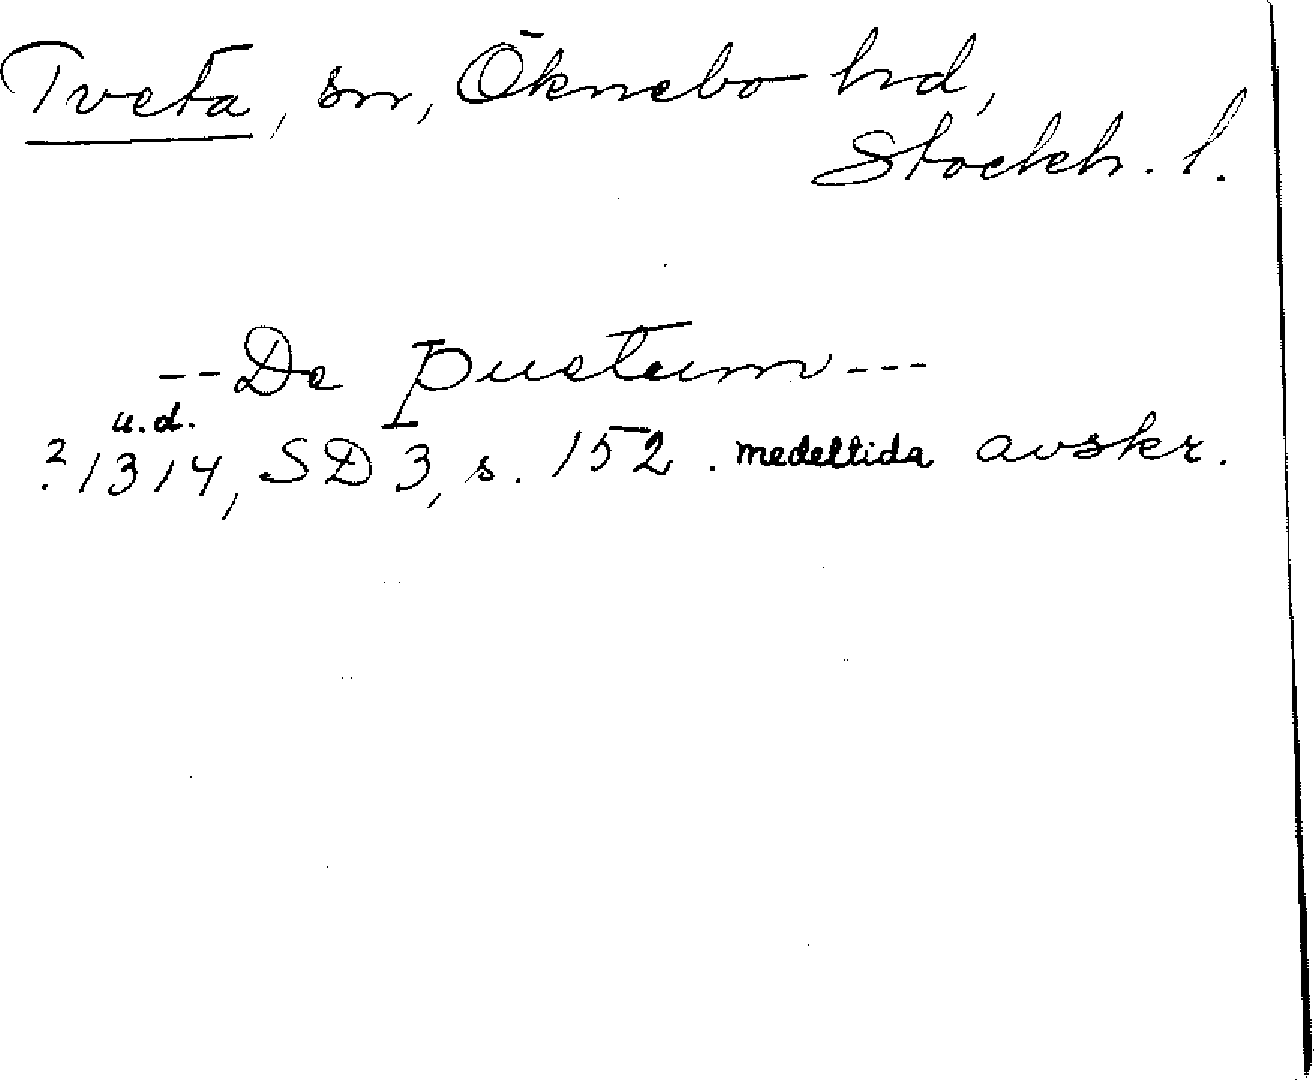 Tveta, sn, Öknebo hd,
Stockh. l.
-- De pustum ---
u.d.
? 1314, SD 3, s. 152. medeltida avskr.